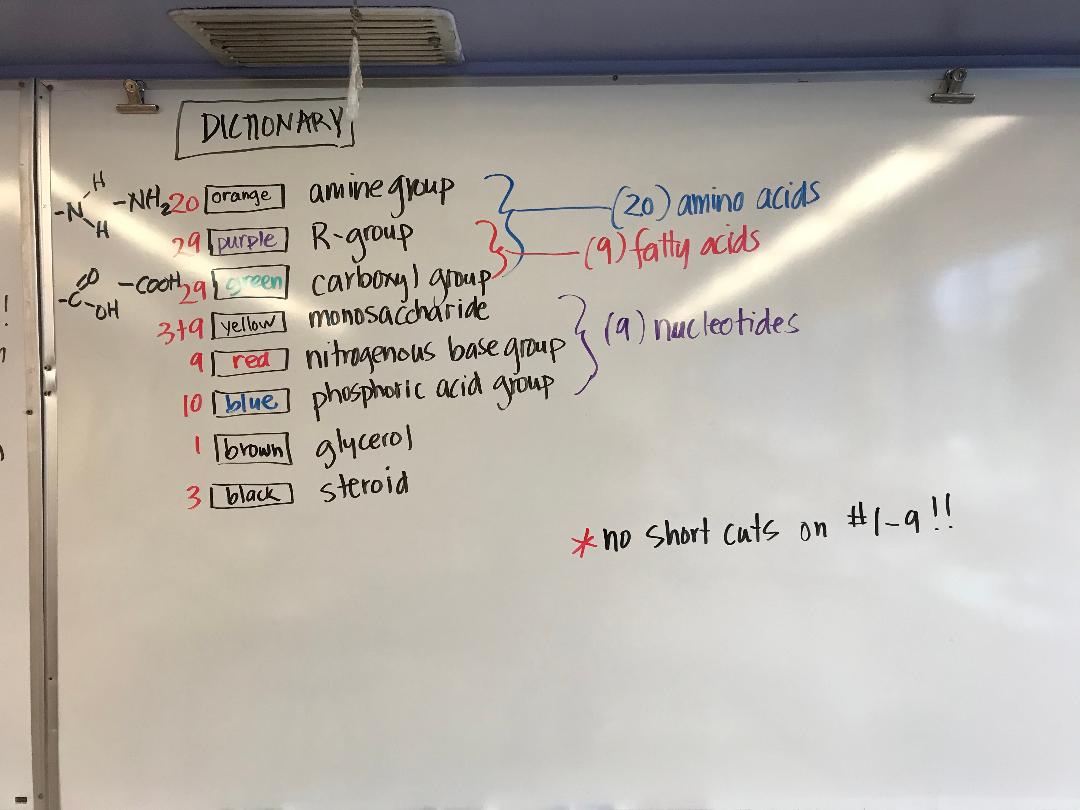 DICTIONARY
H
-N
H
-NH₂ 20 orange amine group
(20) amino acids
29 purple R-group
(9) fatty acids
O
-C
-OH
-COOH 29 green carboxyl group
3+9 yellow monosaccharide
(9) nucleotides
9 red nitrogenous base group
10 blue phosphoric acid group
1 brown glycerol
3 black steroid
*no short cuts on #1-9!!
!